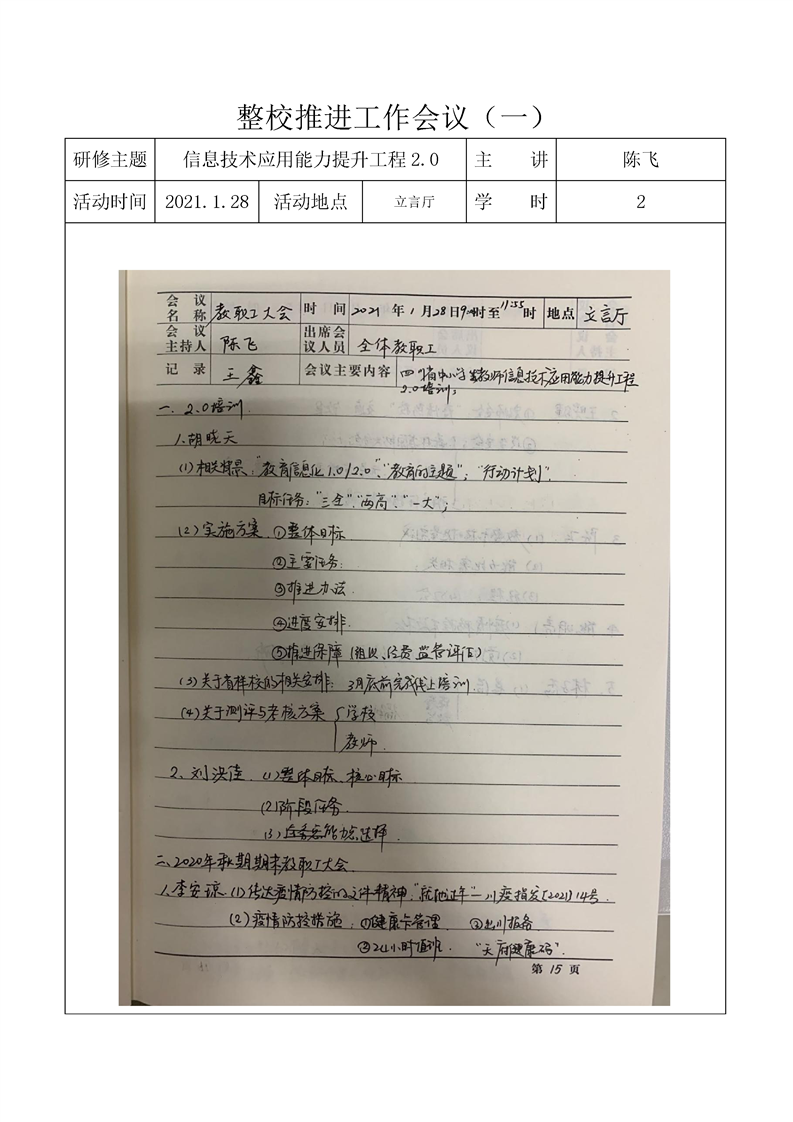 整校推进工作会议（一）
研修主题 信息技术应用能力提升工程2.0 主 讲 陈飞
活动时间 2021.1.28 活动地点 立言厅 学 时 2
会议名称 教职工大会 时间 2021年1月28日9:00时至11:55时 地点 立言厅
会议主持人 陈飞 出席会议人员 全体教职工
记录 王鑫 会议主要内容 四川省中小学教师信息技术应用能力提升工程
2.0培训；
一、2.0培训.
1.胡晓天
(1)相关背景："教育信息化1.0/2.0"、"教育的主题"；"行动计划".
目标任务："三全""两高""一大"；
(2)实施方案 ①整体目标
②主要任务：
③推进办法.
④进度安排.
⑤推进保障（组织、经费、监管评估）
(3)关于有样校的相关安排：3月底前完成线上培训.
(4)关于测评与考核方案 学校
教师.
2、刘洪佳 (1)整体目标、核心目标
(2)阶段任务.
(3)能力点选择.
二、2020年秋期期末教职工大会
1.李安琼 (1)传达疫情防控的文件精神."就地过年"—川疫指发[2021]14号.
(2)疫情防控措施：①健康卡管理 ②出川报备
③24小时值班. "天府健康码".
第 15 页